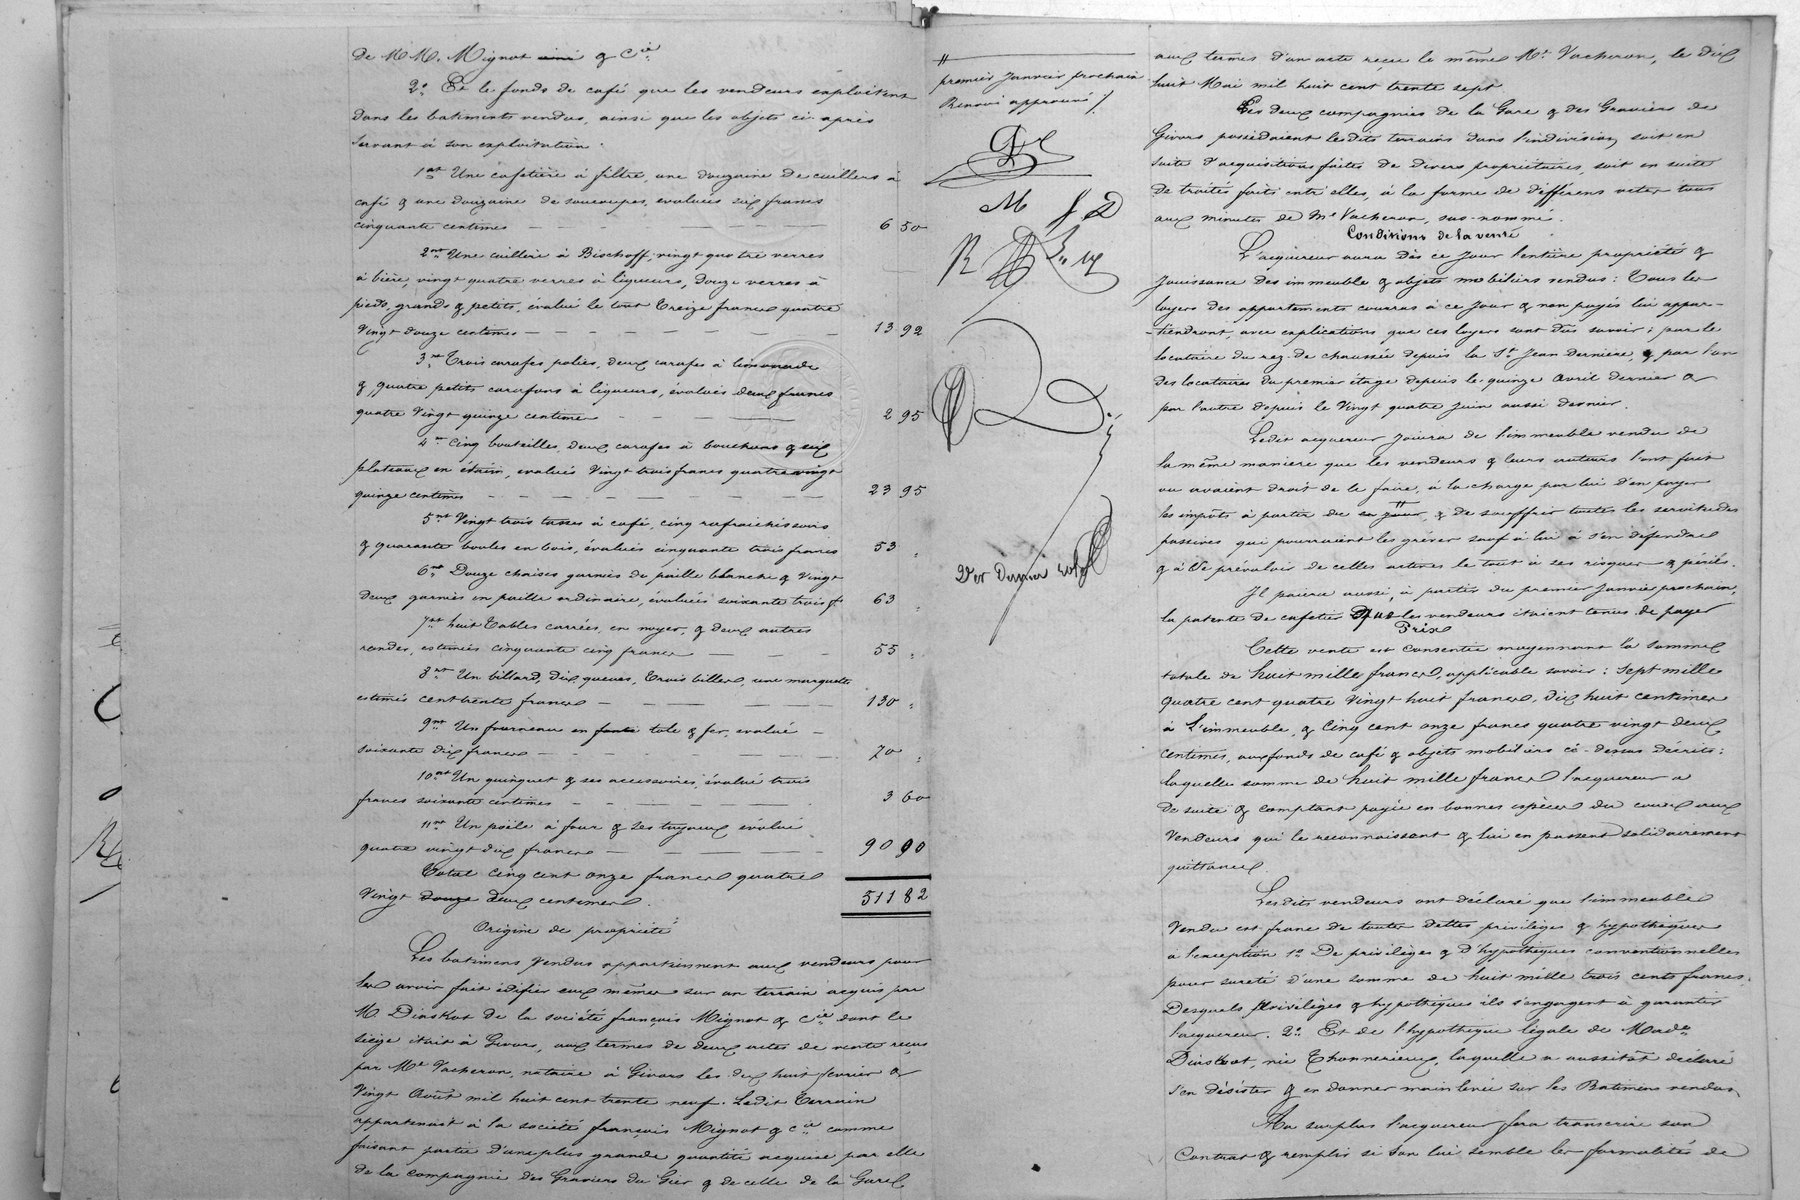 de M.M. Mignot ainé & Cie
2o Et le fonds de café que les vendeurs exploitent
dans les batiments vendus, ainsi que les objets ci-après
servant à son exploitation.
1ent Une cafetière à filtre, une douzaine de cuillers à
café & une douzaine de soucoupes, évaluées six francs
cinquante centimes 6 50
2ent Une cuillère à Bischoff, vingt quatre verres
à bière, vingt quatre verres à liqueurs, douze verres à
pieds, grands & petits, évalué le tout treize francs quatre
vingt douze centimes 13 92
3ent Trois carafes polies, deux carafes à limonade
& quatre petits carafons à liqueurs, évalués deux francs
quatre vingt quinze centimes 2 95
4ent Cinq bouteilles, deux carafes à bouchons & six
plateaux en étain, évalués vingt trois francs quatre vingt
quinze centimes 23 95
5ent Vingt trois tasses à café, cinq rafraichissoirs
& quarante boules en bois, évalués cinquante trois francs 53 "
6ent Douze chaises garnies de paille blanche & vingt
deux garnies en paille ordinaire, évaluées soixante trois fs 63 "
7ent huit tables carrées, en noyer, & deux autres
rondes, estimées cinquante cinq francs 55 "
8ent Un billard, dix queues, trois billes, une marquette
estimés cent trente francs 130 "
9ent Un fourneau en fonte tole & fer, évalué
soixante dix francs 70 "
10ent Un quinquet & ses accessoires, évalué trois
francs soixante centimes 3 60
11ent Un poële à four & ses tuyaux évalué
quatre vingt dix francs 90 90
Total cinq cent onze francs quatre
vingt douze deux centimes. 511 82
Origine de propriété
Les batimens vendus appartiennent aux vendeurs pour
les avoir fait édifier eux mêmes sur un terrain acquis par
M Dinskot de la société françois Mignot & Cie dont le
siège était à Givors, aux termes de deux actes de vente reçus
par Me Vacheron, notaire à Givors les dix huit février &
vingt Août mil huit cent trente neuf. Ledit terrain
appartenait à la société françois Mignot & Cie comme
faisant partie d'une plus grande quantité acquise par elle
de la compagnie des Graviers du Gier & de celle de la Gare
premier Janvier prochain
Renvoi approuvé
M f D
R
2er Dernier rôle
aux termes d'un acte reçu le même Me Vacheron, le dix
huit Mai mil huit cent trente sept.
Les deux compagnies de la Gare & des Graviers de
Givors possédaient lesdits terrains dans l'indivision, soit en
suite d'acquisitions faites de divers propriétaires, soit en suite
de traités faits entr'elles, à la forme de différens actes tous
aux minutes de Me Vacheron, sus-nommé.
Conditions de la vente
L'acquéreur aura dès ce jour l'entière propriété &
jouissance des immeuble & objets mobiliers vendus: Tous les
loyers des appartements courus à ce jour & non payés lui appar-
-tiendront, avec explications que ces loyers sont dûs savoir: par le
locataire du rez de chaussée depuis la St Jean dernière, & par l'un
des locataires du premier étage depuis le quinze avril dernier &
par l'autre depuis le vingt quatre juin aussi dernier.
Ledit acquéreur jouira de l'immeuble vendu de
la même manière que les vendeurs & leurs auteurs l'ont fait
ou avaient droit de le faire, à la charge par lui d'en payer
les impôts à partir de ce jour, & de souffrir toutes les servitudes
passives qui pourraient les grèver sauf à lui à s'en défendre
& à se prévaloir de celles actives le tout à ses risques & périls.
Il paiera aussi, à partir du premier Janvier prochain,
la patente de cafetier que les vendeurs étaient tenus de payer
Prix
Cette vente est consentie moyennant la somme
totale de huit mille francs, applicable savoir: sept mille
quatre cent quatre vingt huit francs, dix huit centimes
à l'immeuble, & cinq cent onze francs quatre vingt deux
centimes, aux fonds de café & objets mobiliers ci-dessus décrits:
laquelle somme de huit mille francs l'acquéreur a
de suite & comptant payée en bonnes espèces du cours aux
vendeurs qui le reconnaissent & lui en passent solidairement
quittance.
Lesdits vendeurs ont déclaré que l'immeuble
vendu est franc de toutes dettes privilèges & hypothèques
à l'exception 1o De privilèges & d'hypothèques conventionnelles
pour sureté d'une somme de huit mille trois cents francs,
desquels privilèges & hypothèques ils s'engagent à garantir
l'acquéreur. 2o Et de l'hypothèque légale de Made
Dinskot, née Thonnerieux, laquelle a aussitôt déclaré
s'en désister & en donner main levée sur les Batimens vendus,
Au surplus l'acquéreur fera transcrire son
Contrat & remplir si bon lui semble les formalités de